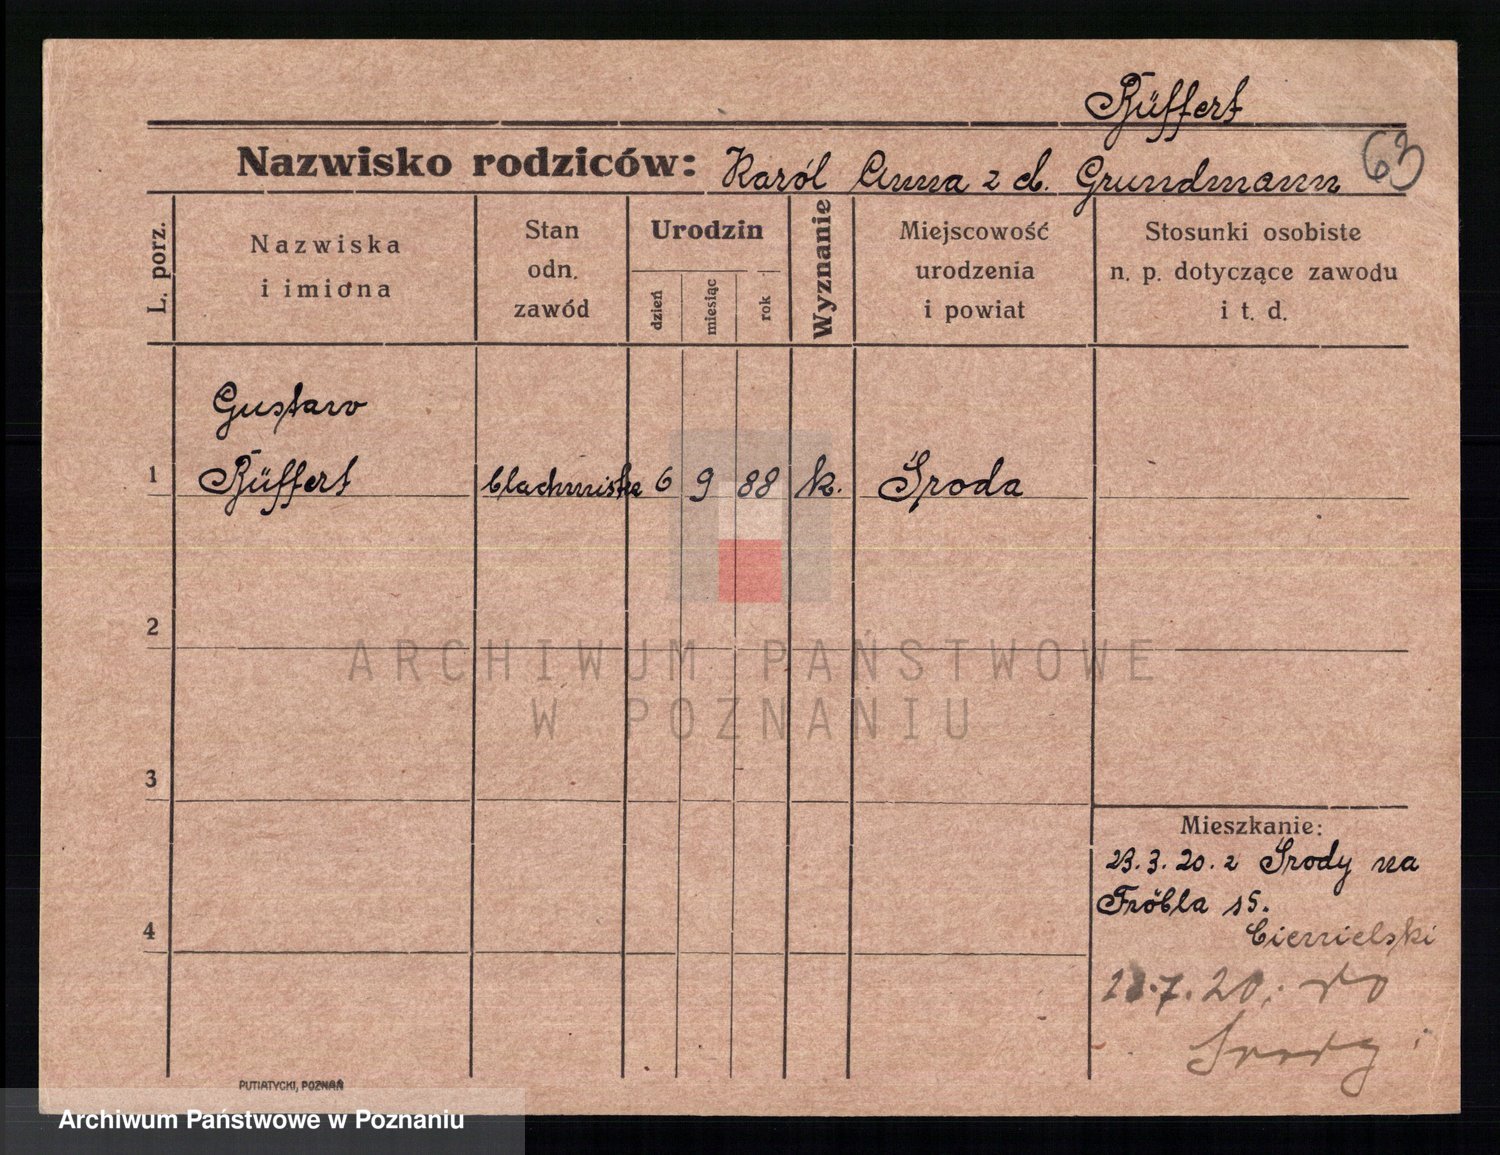 Rüffert
63
Nazwisko rodziców: Karól Anna z d. Grundmann
L. porz.
Nazwiska
i imiona
Stan
odn.
zawód
Urodzin
dzień
miesiąc
rok
Wyznanie
Miejscowość
urodzenia
i powiat
Stosunki osobiste
n. p. dotyczące zawodu
i t. d.
Gustaw
1 Rüffert blachmistrz 6 9 88 k. Środa
2
ARCHIWUM PAŃSTWOWE
W POZNANIU
3
Mieszkanie:
23.3.20. z Środy na
Fröbla 15.
4
Ciemielski
.7.20. do
Środy
PUTIATYCKI, POZNAŃ
Archiwum Państwowe w Poznaniu